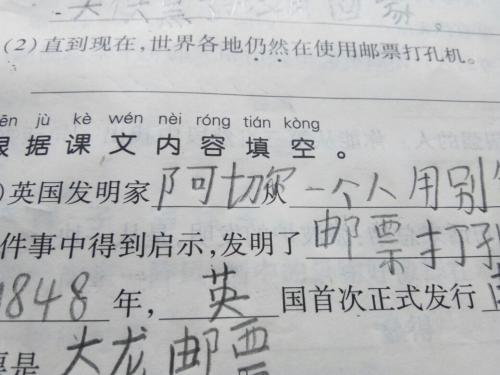 (2)直到现在，世界各地仍然在使用邮票打孔机。
ēn jù kè wén nèi róng tián kòng
根据课文内容填空。
)英国发明家阿切尔从一个人用别
件事中得到启示，发明了邮票打孔
1848年，英国首次正式发行
票是大龙邮票